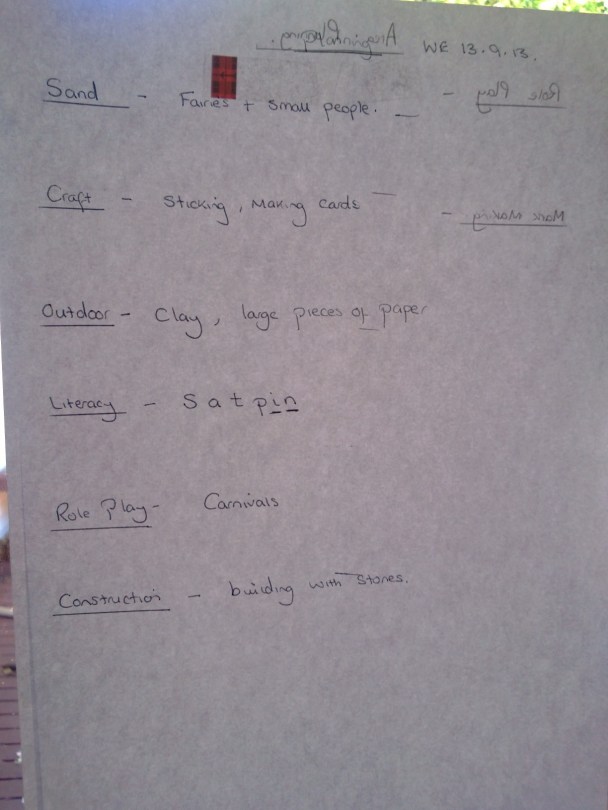 WE 13.9.13.
Sand - Fairies + small people.
Role Play -
Craft - Sticking, Making Cards
Mark Making -
Outdoor - Clay, large pieces of paper
Literacy - S a t p i n
Role Play - Carnivals
Construction - building with stones.